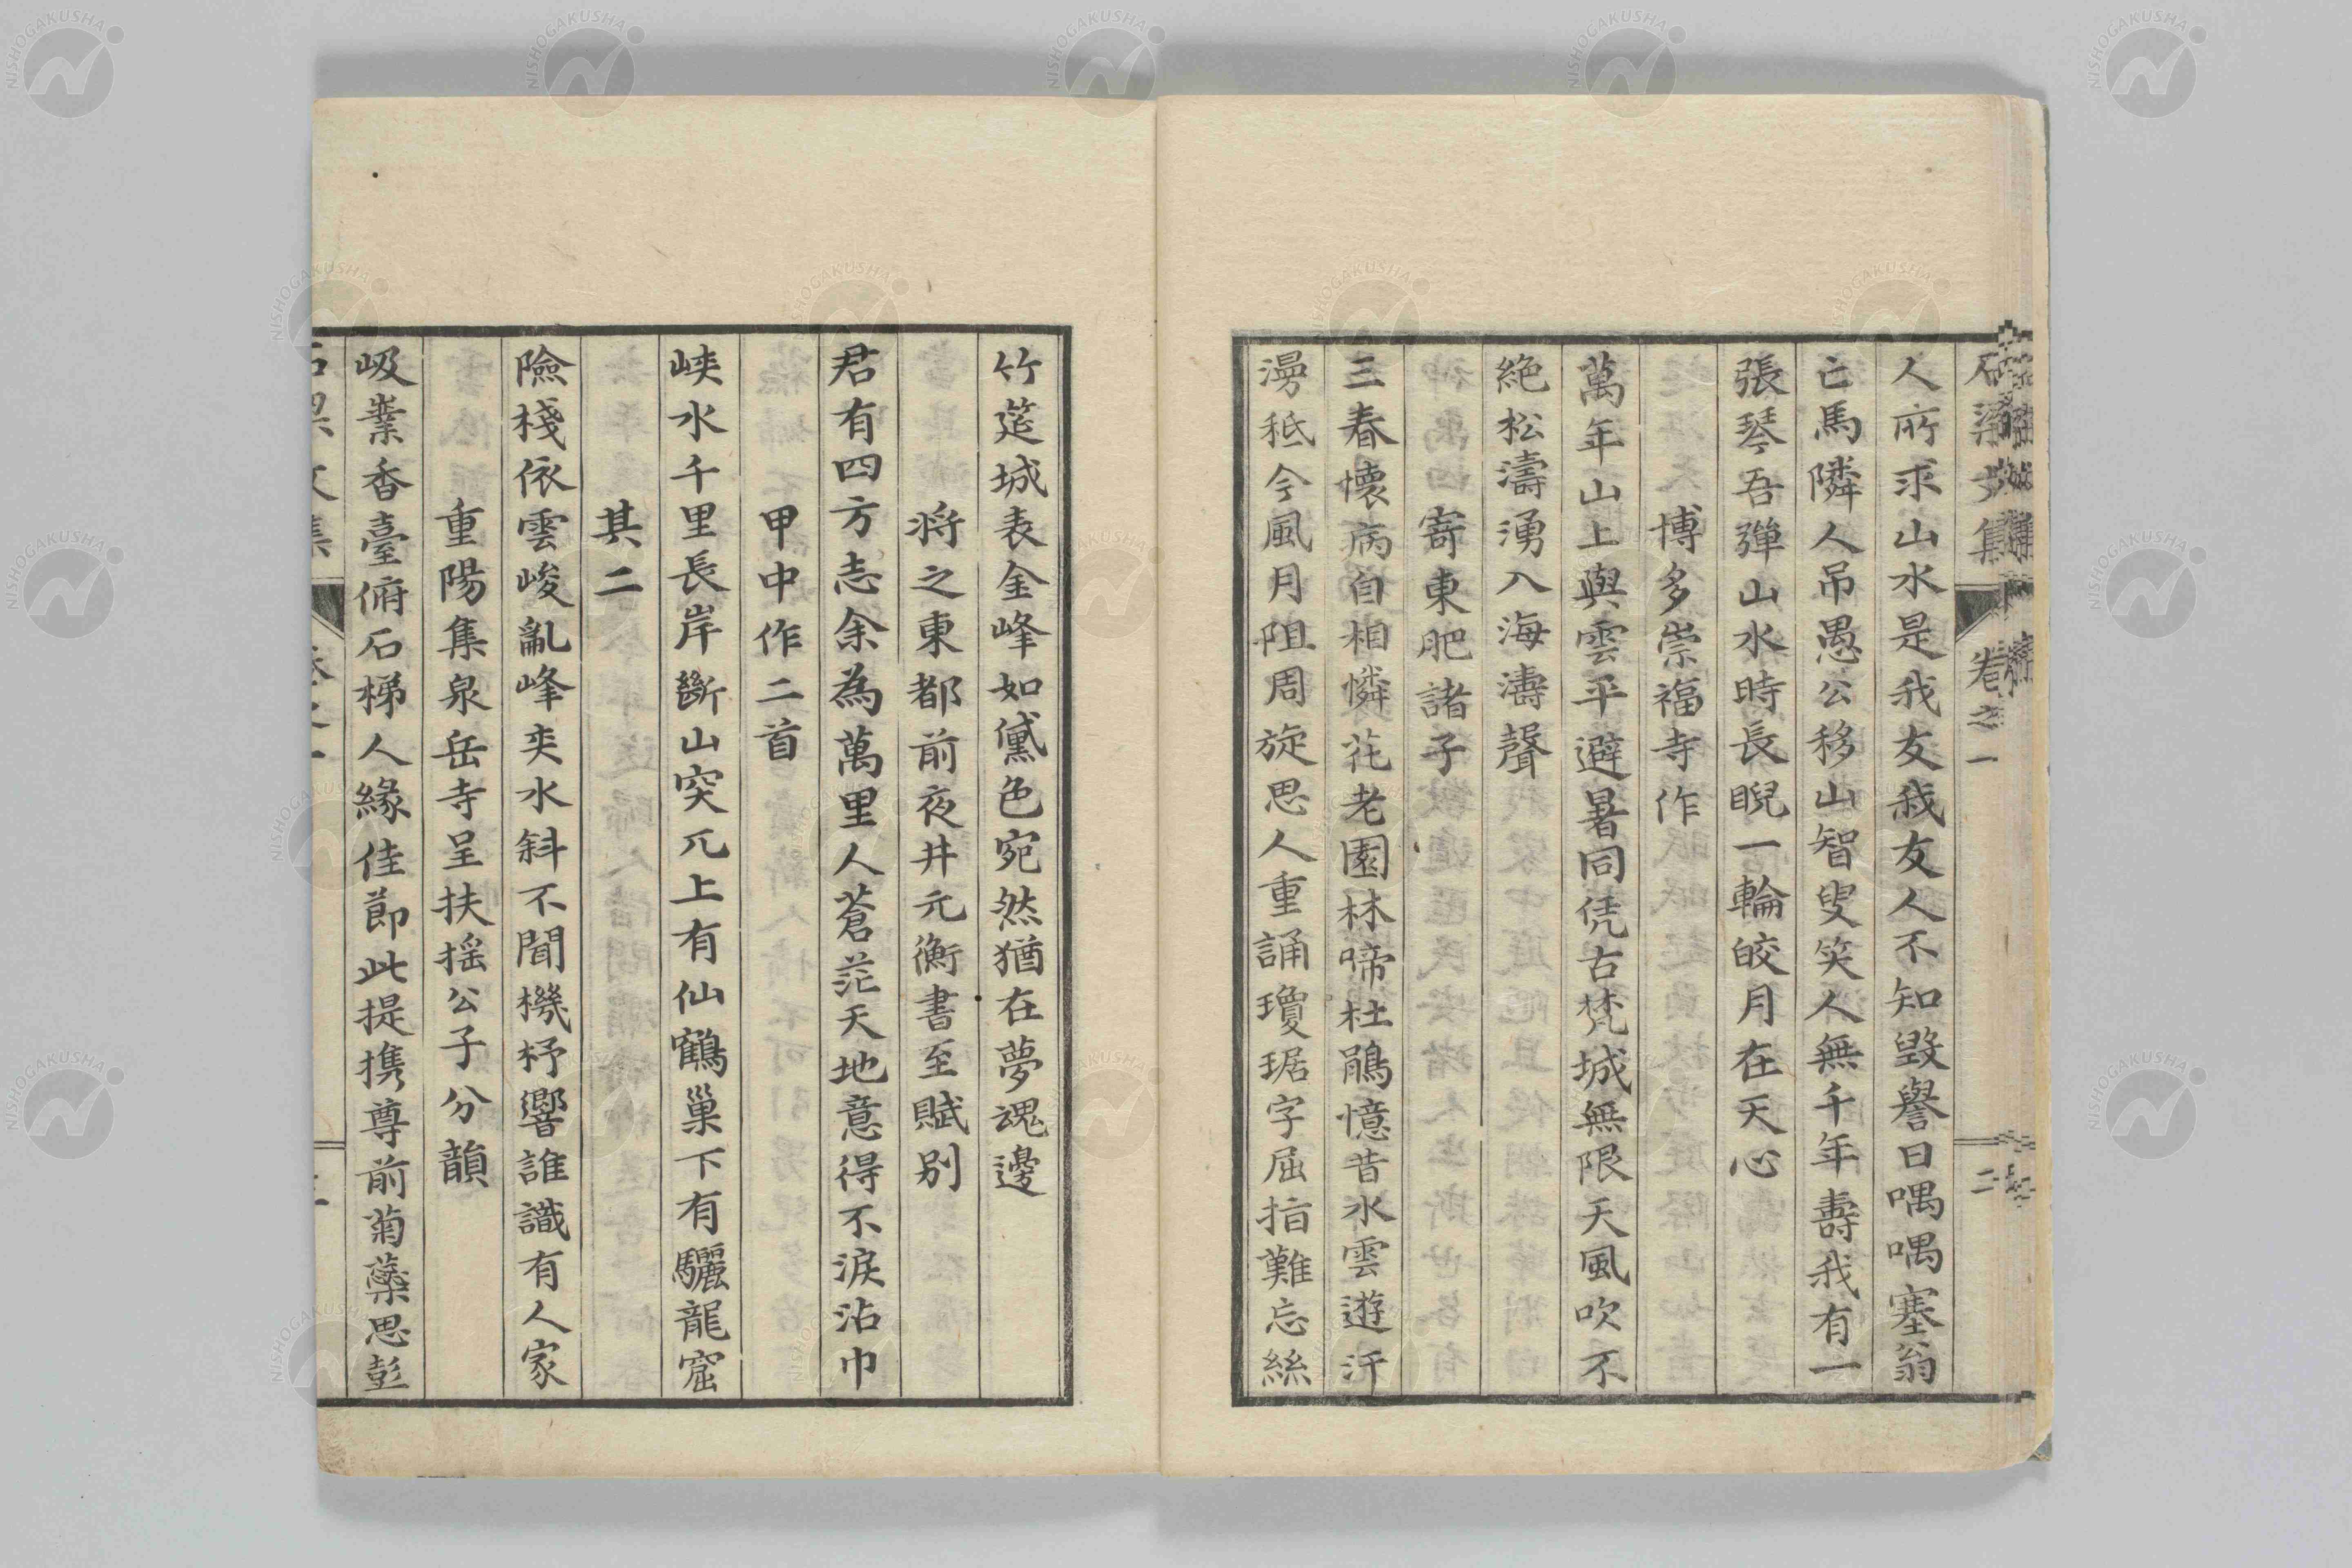 人所求山水是我友我友人不知毀譽日喁喁塞翁
亡馬隣人吊愚公移山智叟笑人無千年壽我有一
張琴吾彈山水時長睨一輪皎月在天心
博多崇福寺作
萬年山上與雲平避暑同凭古梵城無限天風吹不
絶松濤湧入海濤聲
寄東肥諸子
三春懷病自相憐花老園林啼杜鵑憶昔水雲遊汗
漫秪今風月阻周旋思人重誦瓊琚字屈指難忘絲
竹筵城表金峰如黛色宛然猶在夢魂邊
将之東都前夜井元衡書至賦别
君有四方志余為萬里人蒼茫天地意得不涙沾巾
甲中作二首
峡水千里長岸斷山突兀上有仙鶴巢下有驪龍窟
其二
險棧依雲峻亂峰夾水斜不聞機杼響誰識有人家
重陽集泉岳寺呈扶揺公子分韻
岌嶪香臺俯石梯人緣佳節此提携尊前菊蘂思彭
卷之一
二
NISHOGAKUSHA